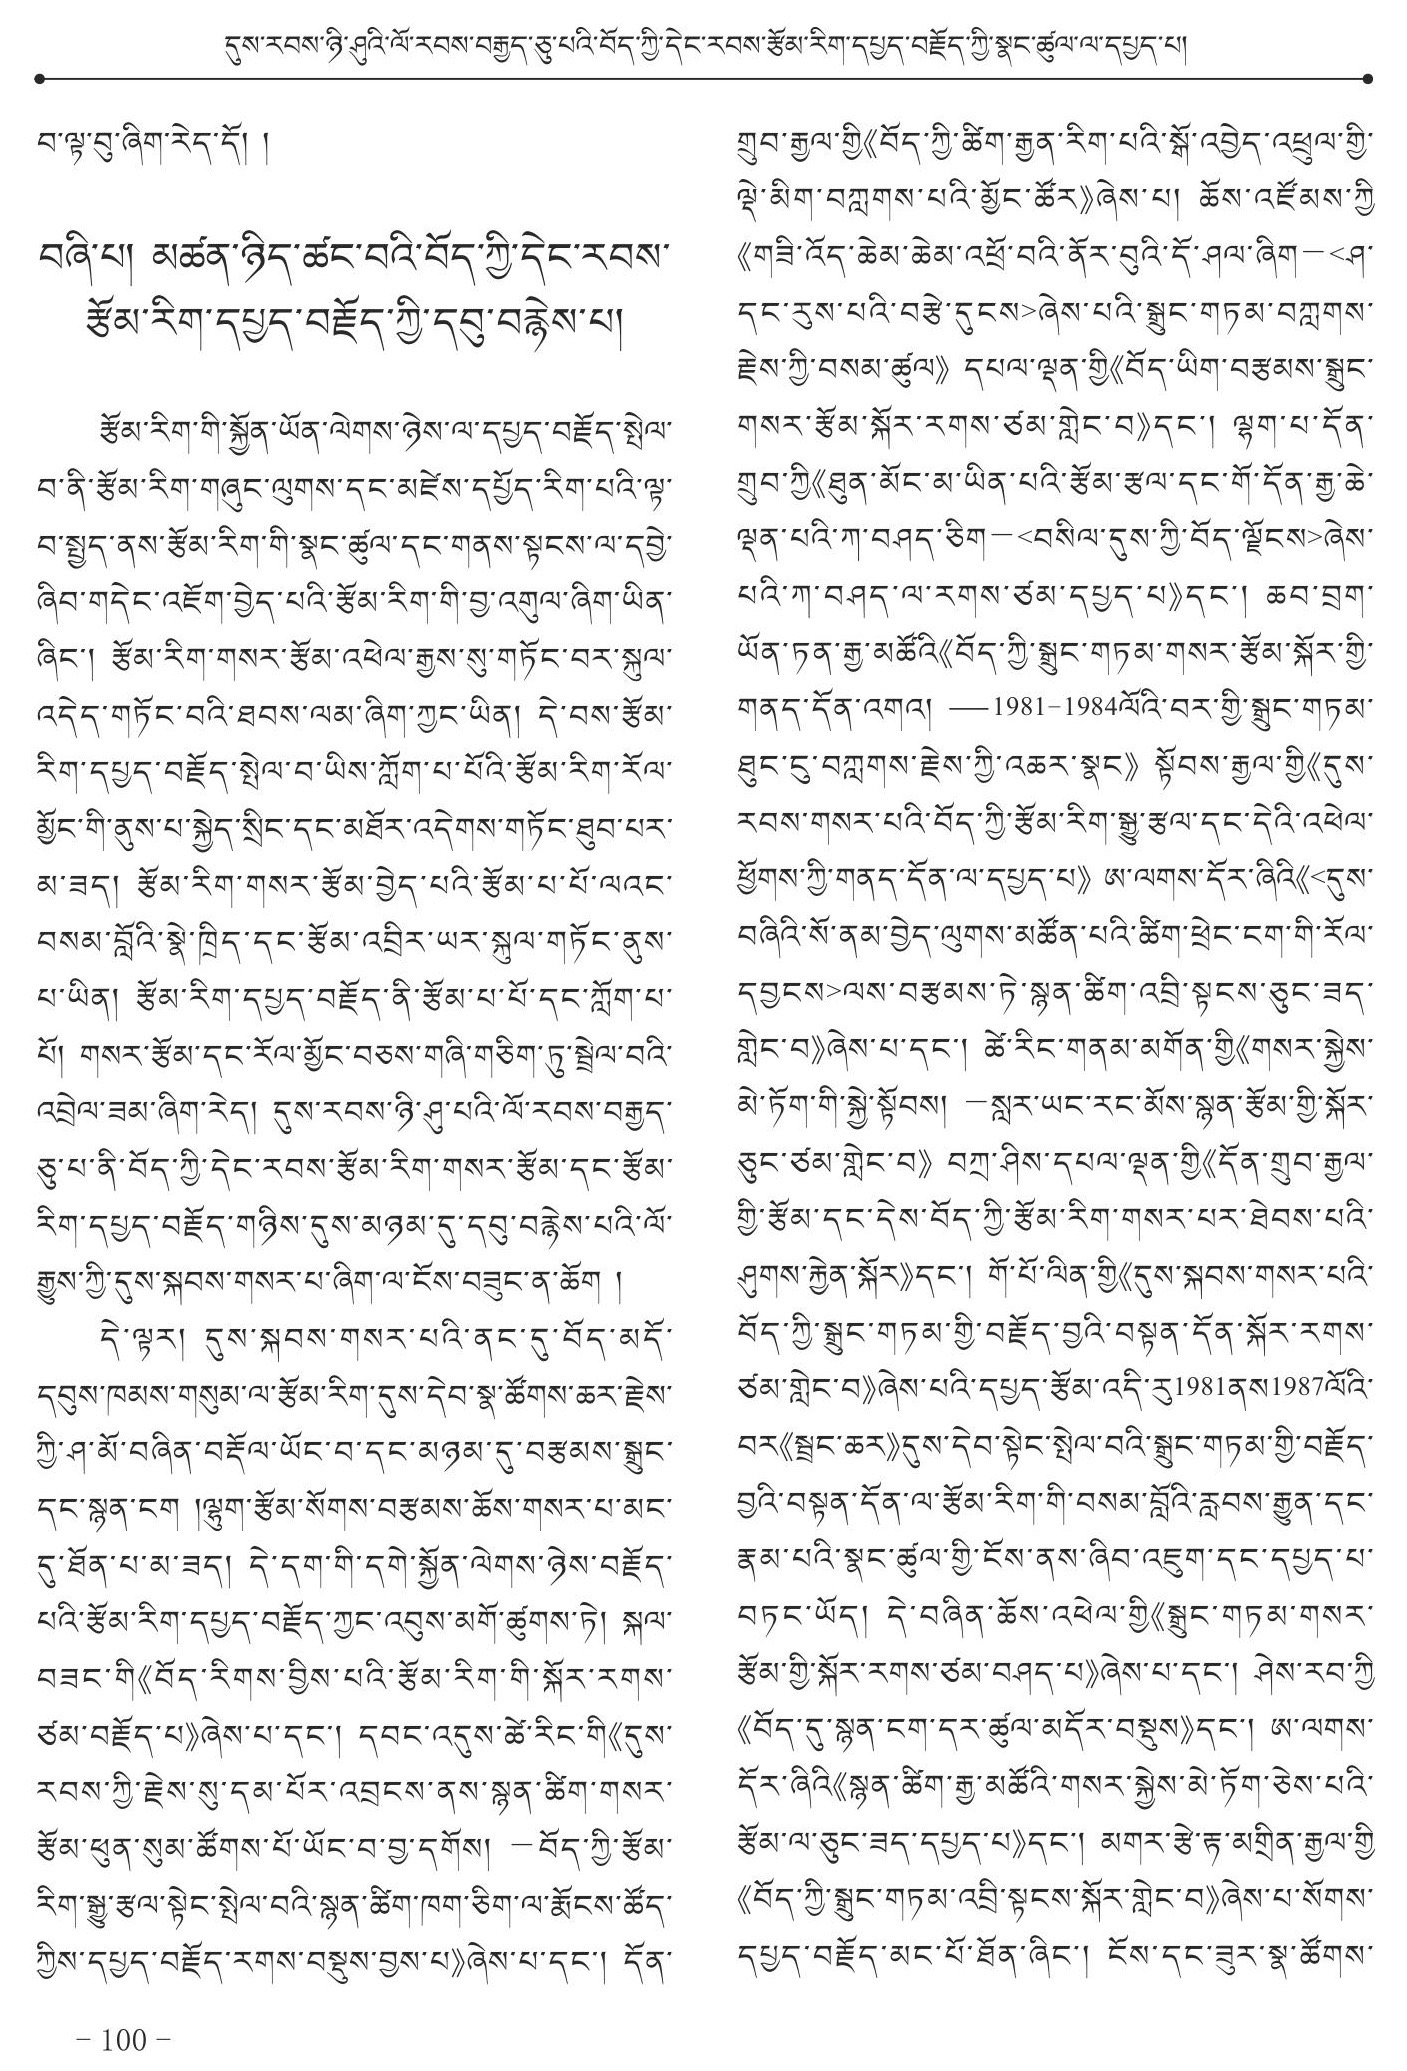 དུས་རབས་ཉི་ཤུའི་ལོ་རབས་བརྒྱད་ཅུ་པའི་བོད་ཀྱི་དེང་རབས་རྩོམ་རིག་དཔྱད་བརྗོད་ཀྱི་སྣང་ཚུལ་ལ་དཔྱད་པ།
བ་ལྟ་བུ་ཞིག་རེད་དོ། །
བཞི་པ། མཚན་ཉིད་ཚང་བའི་བོད་ཀྱི་དེང་རབས་
རྩོམ་རིག་དཔྱད་བརྗོད་ཀྱི་དབུ་བརྙེས་པ།
རྩོམ་རིག་གི་སྐྱོན་ཡོན་ལེགས་ཉེས་ལ་དཔྱད་བརྗོད་སྤེལ་
བ་ནི་རྩོམ་རིག་གཞུང་ལུགས་དང་མཛེས་དཔྱོད་རིག་པའི་ལྟ་
བ་སྤྱད་ནས་རྩོམ་རིག་གི་སྣང་ཚུལ་དང་གནས་སྟངས་ལ་དབྱེ་
ཞིབ་གདེང་འཇོག་བྱེད་པའི་རྩོམ་རིག་གི་བྱ་འགུལ་ཞིག་ཡིན་
ཞིང་། རྩོམ་རིག་གསར་རྩོམ་འཕེལ་རྒྱས་སུ་གཏོང་བར་སྐུལ་
འདེད་གཏོང་བའི་ཐབས་ལམ་ཞིག་ཀྱང་ཡིན། དེ་བས་རྩོམ་
རིག་དཔྱད་བརྗོད་སྤེལ་བ་ཡིས་ཀློག་པ་པོའི་རྩོམ་རིག་རོལ་
མྱོང་གི་ནུས་པ་སྐྱེད་སྲིང་དང་མཐོར་འདེགས་གཏོང་ཐུབ་པར་
མ་ཟད། རྩོམ་རིག་གསར་རྩོམ་བྱེད་པའི་རྩོམ་པ་པོ་ལའང་
བསམ་བློའི་སྣེ་ཁྲིད་དང་རྩོམ་འབྲིར་ཡར་སྐུལ་གཏོང་ནུས་
པ་ཡིན། རྩོམ་རིག་དཔྱད་བརྗོད་ནི་རྩོམ་པ་པོ་དང་ཀློག་པ་
པོ། གསར་རྩོམ་དང་རོལ་མྱོང་བཅས་གཞི་གཅིག་ཏུ་སྦྲེལ་བའི་
འབྲེལ་ཟམ་ཞིག་རེད། དུས་རབས་ཉི་ཤུ་པའི་ལོ་རབས་བརྒྱད་
ཅུ་པ་ནི་བོད་ཀྱི་དེང་རབས་རྩོམ་རིག་གསར་རྩོམ་དང་རྩོམ་
རིག་དཔྱད་བརྗོད་གཉིས་དུས་མཉམ་དུ་དབུ་བརྙེས་པའི་ལོ་
རྒྱུས་ཀྱི་དུས་སྐབས་གསར་པ་ཞིག་ལ་ངོས་བཟུང་ན་ཆོག །
དེ་ལྟར། དུས་སྐབས་གསར་པའི་ནང་དུ་བོད་མདོ་
དབུས་ཁམས་གསུམ་ལ་རྩོམ་རིག་དུས་དེབ་སྣ་ཚོགས་ཆར་རྗེས་
ཀྱི་ཤ་མོ་བཞིན་བརྡོལ་ཡོང་བ་དང་མཉམ་དུ་བརྩམས་སྒྲུང་
དང་སྙན་ངག །ལྷུག་རྩོམ་སོགས་བརྩམས་ཆོས་གསར་པ་མང་
དུ་ཐོན་པ་མ་ཟད། དེ་དག་གི་དགེ་སྐྱོན་ལེགས་ཉེས་བརྗོད་
པའི་རྩོམ་རིག་དཔྱད་བརྗོད་ཀྱང་འབུས་མགོ་ཚུགས་ཏེ། སྐལ་
བཟང་གི《བོད་རིགས་བྱིས་པའི་རྩོམ་རིག་གི་སྐོར་རགས་
ཙམ་བརྗོད་པ》ཞེས་པ་དང་། དབང་འདུས་ཚེ་རིང་གི《དུས་
རབས་ཀྱི་རྗེས་སུ་དམ་པོར་འབྲངས་ནས་སྙན་ཚིག་གསར་
རྩོམ་ཕུན་སུམ་ཚོགས་པོ་ཡོང་བ་བྱ་དགོས། —བོད་ཀྱི་རྩོམ་
རིག་སྒྱུ་རྩལ་སྟེང་སྤེལ་བའི་སྙན་ཚིག་ཁག་ཅིག་ལ་རྨོངས་ཚོད་
ཀྱིས་དཔྱད་བརྗོད་རགས་བསྡུས་བྱས་པ》ཞེས་པ་དང་། དོན་
གྲུབ་རྒྱལ་གྱི《བོད་ཀྱི་ཚིག་རྒྱན་རིག་པའི་སྒོ་འབྱེད་འཕྲུལ་གྱི་
ལྡེ་མིག་བཀླགས་པའི་མྱོང་ཚོར》ཞེས་པ། ཆོས་འཛོམས་ཀྱི
《གཟི་འོད་ཆེམ་ཆེམ་འཕྲོ་བའི་ནོར་བུའི་དོ་ཤལ་ཞིག—<ཤ་
དང་རུས་པའི་བརྩེ་དུངས>ཞེས་པའི་སྒྲུང་གཏམ་བཀླགས་
རྗེས་ཀྱི་བསམ་ཚུལ》 དཔལ་ལྡན་གྱི《བོད་ཡིག་བརྩམས་སྒྲུང་
གསར་རྩོམ་སྐོར་རགས་ཙམ་གླེང་བ》དང་། ལྷག་པ་དོན་
གྲུབ་ཀྱི《ཐུན་མོང་མ་ཡིན་པའི་རྩོམ་རྩལ་དང་གོ་དོན་རྒྱ་ཆེ་
ལྡན་པའི་ཀ་བཤད་ཅིག—<བསིལ་དུས་ཀྱི་བོད་ལྗོངས>ཞེས་
པའི་ཀ་བཤད་ལ་རགས་ཙམ་དཔྱད་པ》དང་། ཆབ་བྲག་
ཡོན་ཏན་རྒྱ་མཚོའི《བོད་ཀྱི་སྒྲུང་གཏམ་གསར་རྩོམ་སྐོར་གྱི་
གནད་དོན་འགའ། ——1981-1984ལོའི་བར་གྱི་སྒྲུང་གཏམ་
ཐུང་ངུ་བཀླགས་རྗེས་ཀྱི་འཆར་སྣང》 སྟོབས་རྒྱལ་གྱི《དུས་
རབས་གསར་པའི་བོད་ཀྱི་རྩོམ་རིག་སྒྱུ་རྩལ་དང་དེའི་འཕེལ་
ཕྱོགས་ཀྱི་གནད་དོན་ལ་དཔྱད་པ》 ཨ་ལགས་དོར་ཞིའི《<དུས་
བཞིའི་སོ་ནམ་བྱེད་ལུགས་མཚོན་པའི་ཚིག་ཕྲེང་ངག་གི་རོལ་
དབྱངས>ལས་བརྩམས་ཏེ་སྙན་ཚིག་འབྲི་སྟངས་ཅུང་ཟད་
གླེང་བ》ཞེས་པ་དང་། ཚེ་རིང་གནམ་མགོན་གྱི《གསར་སྐྱེས་
མེ་ཏོག་གི་སྐྱེ་སྟོབས། —སླར་ཡང་རང་མོས་སྙན་རྩོམ་གྱི་སྐོར་
ཅུང་ཙམ་གླེང་བ》 བཀྲ་ཤིས་དཔལ་ལྡན་གྱི《དོན་གྲུབ་རྒྱལ་
གྱི་རྩོམ་དང་དེས་བོད་ཀྱི་རྩོམ་རིག་གསར་པར་ཐེབས་པའི་
ཤུགས་རྐྱེན་སྐོར》དང་། གོ་པོ་ལིན་གྱི《དུས་སྐབས་གསར་པའི་
བོད་ཀྱི་སྒྲུང་གཏམ་གྱི་བརྗོད་བྱའི་བསྟན་དོན་སྐོར་རགས་
ཙམ་གླེང་བ》ཞེས་པའི་དཔྱད་རྩོམ་འདི་རུ1981ནས1987ལོའི་
བར《སྦྲང་ཆར》དུས་དེབ་སྟེང་སྤེལ་བའི་སྒྲུང་གཏམ་གྱི་བརྗོད་
བྱའི་བསྟན་དོན་ལ་རྩོམ་རིག་གི་བསམ་བློའི་རླབས་རྒྱུན་དང་
རྣམ་པའི་སྣང་ཚུལ་གྱི་ངོས་ནས་ཞིབ་འཇུག་དང་དཔྱད་པ་
བཏང་ཡོད། དེ་བཞིན་ཆོས་འཕེལ་གྱི《སྒྲུང་གཏམ་གསར་
རྩོམ་གྱི་སྐོར་རགས་ཙམ་བཤད་པ》ཞེས་པ་དང་། ཤེས་རབ་ཀྱི
《བོད་དུ་སྙན་ངག་དར་ཚུལ་མདོར་བསྡུས》དང་། ཨ་ལགས་
དོར་ཞིའི《སྙན་ཚིག་རྒྱ་མཚོའི་གསར་སྐྱེས་མེ་ཏོག་ཅེས་པའི་
རྩོམ་ལ་ཅུང་ཟད་དཔྱད་པ》དང་། མགར་རྩེ་རྟ་མགྲིན་རྒྱལ་གྱི
《བོད་ཀྱི་སྒྲུང་གཏམ་འབྲི་སྟངས་སྐོར་གླེང་བ》ཞེས་པ་སོགས་
དཔྱད་བརྗོད་མང་པོ་ཐོན་ཞིང་། ངོས་དང་ཟུར་སྣ་ཚོགས་
- 100 -